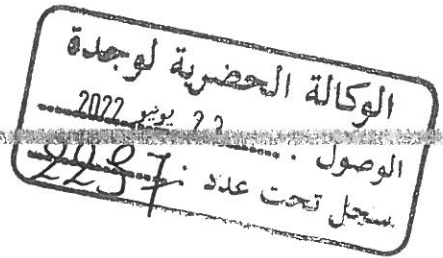 الوكالة الحضرية لوجدة
الوصول : 22 يونيو 2022
سجل تحت عدد : 2237